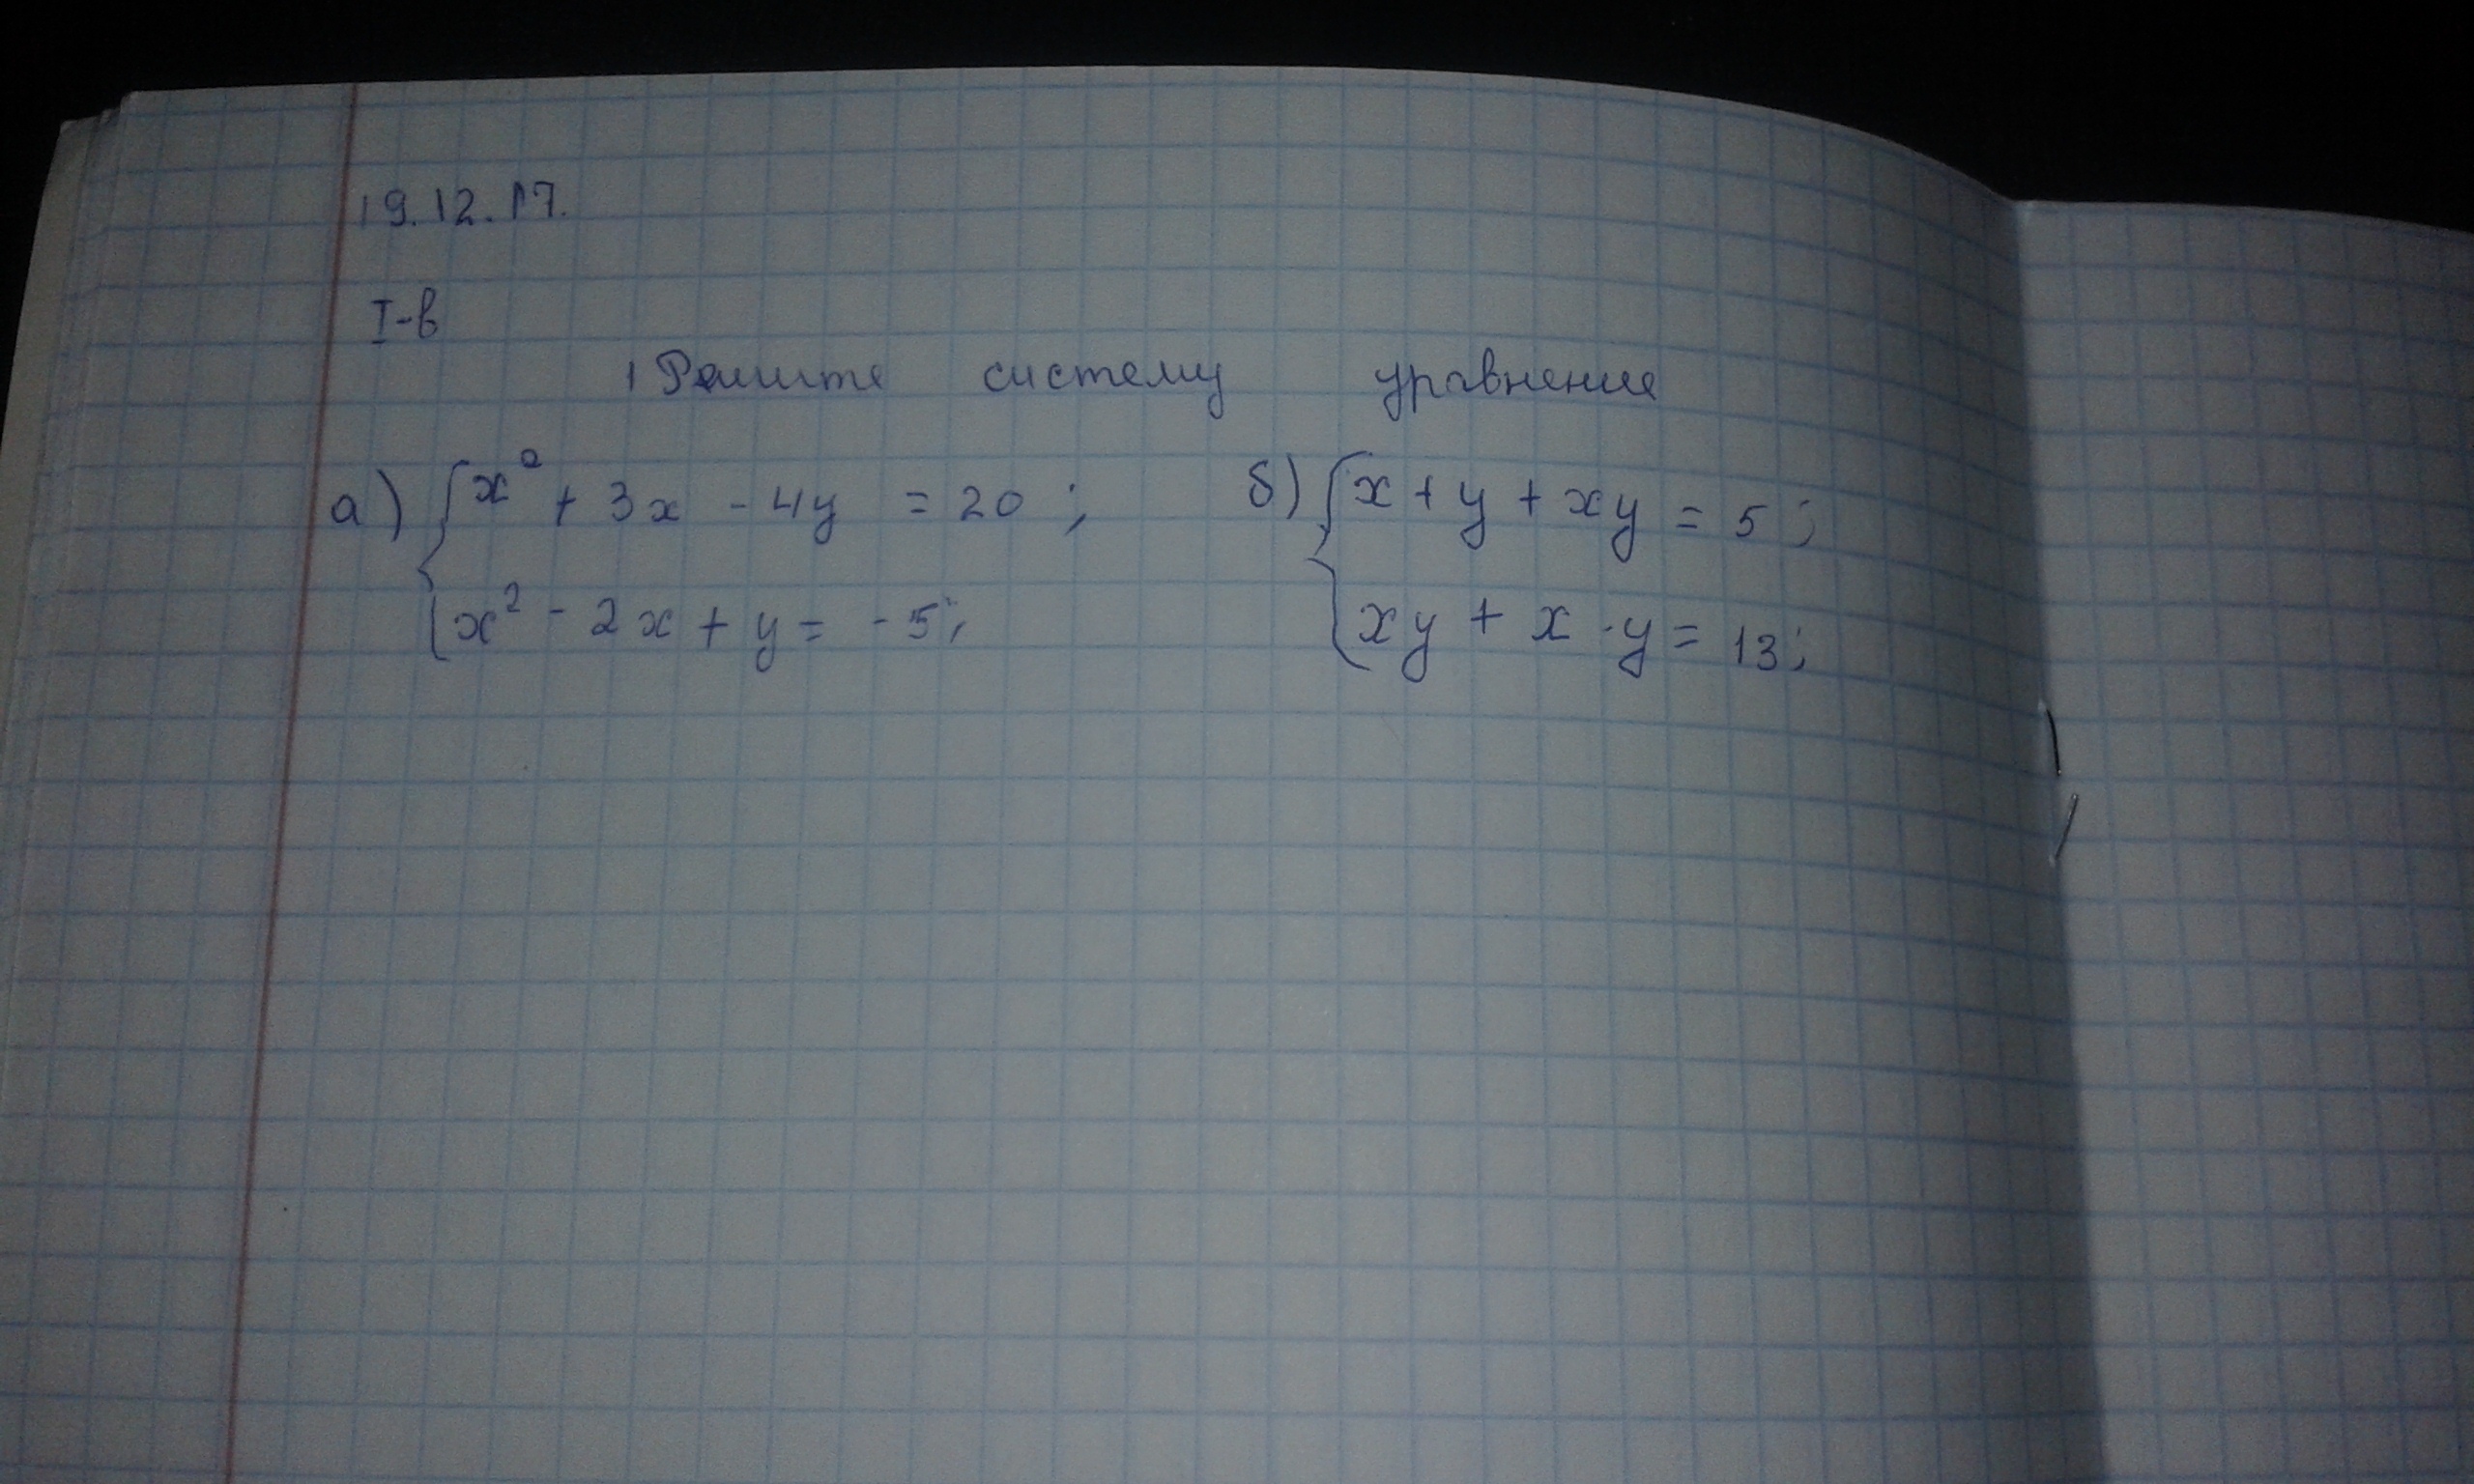 19.12.17.
I-в
1 Решите систему уравнение
а) { x² + 3x - 4y = 20 ; б) { x + y + xy = 5 ;
x² - 2x + y = - 5 ; xy + x - y = 13 ;